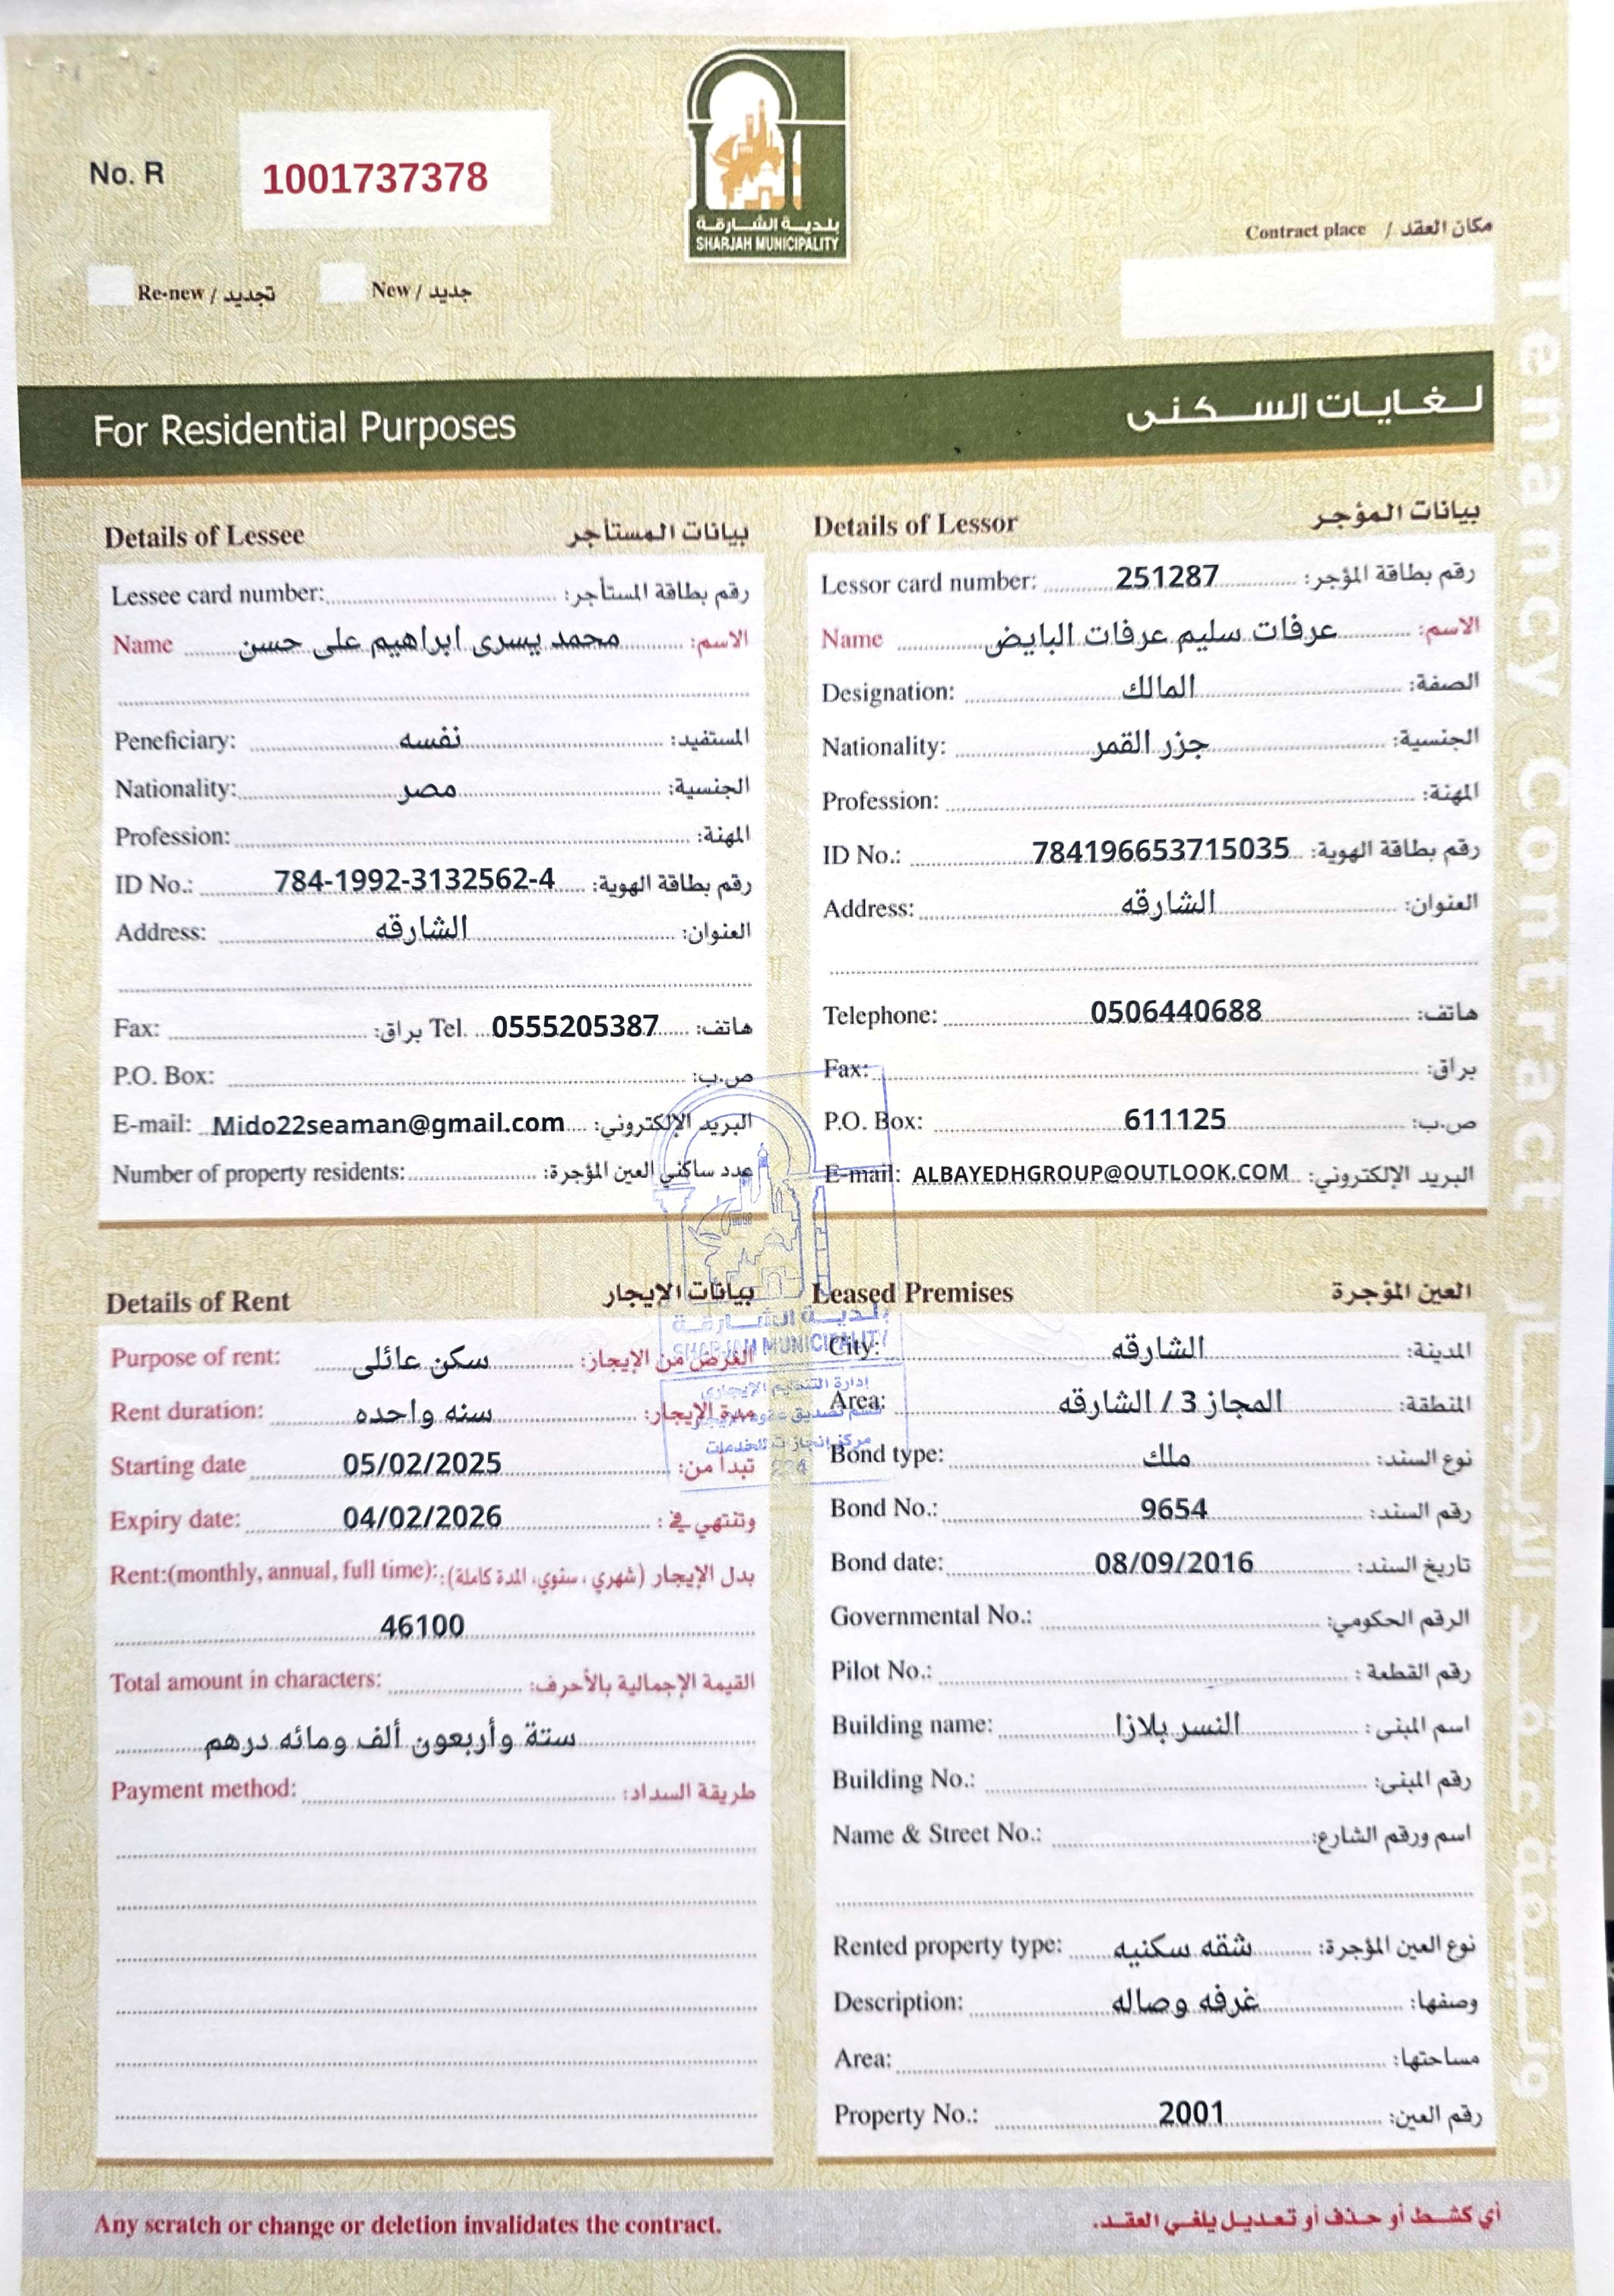 No. R 1001737378
بلدية الشارقة
SHARJAH MUNICIPALITY
Contract place / مكان العقد
Re-new / تجديد New / جديد
For Residential Purposes لغايات السكنى
Details of Lessee بيانات المستأجر
Lessee card number: رقم بطاقة المستأجر:
Name محمد يسرى ابراهيم على حسن الاسم:
Peneficiary: نفسه المستفيد:
Nationality: مصر الجنسية:
Profession: المهنة:
ID No.: 784-1992-3132562-4 رقم بطاقة الهوية:
Address: الشارقه العنوان:
Fax: براق: Tel. 0555205387 هاتف:
P.O. Box: ص.ب:
E-mail: Mido22seaman@gmail.com البريد الإلكتروني:
Number of property residents: عدد ساكني العين المؤجرة:
Details of Lessor بيانات المؤجر
Lessor card number: 251287 رقم بطاقة المؤجر:
Name عرفات سليم عرفات البايض الاسم:
Designation: المالك الصفة:
Nationality: جزر القمر الجنسية:
Profession: المهنة:
ID No.: 784196653715035 رقم بطاقة الهوية:
Address: الشارقه العنوان:
Telephone: 0506440688 هاتف:
Fax: براق:
P.O. Box: 611125 ص.ب:
E-mail: ALBAYEDHGROUP@OUTLOOK.COM البريد الإلكتروني:
Details of Rent بيانات الإيجار
Purpose of rent: سكن عائلى الغرض من الإيجار:
Rent duration: سنه واحده مدة الإيجار:
Starting date 05/02/2025 تبدأ من:
Expiry date: 04/02/2026 وتنتهي في :
Rent:(monthly, annual, full time): بدل الإيجار (شهري، سنوي، المدة كاملة):
46100
Total amount in characters: القيمة الإجمالية بالأحرف:
ستة وأربعون ألف ومائه درهم
Payment method: طريقة السداد:
Leased Premises العين المؤجرة
City: الشارقه المدينة:
Area: المجاز 3 / الشارقه المنطقة:
Bond type: ملك نوع السند:
Bond No.: 9654 رقم السند:
Bond date: 08/09/2016 تاريخ السند:
Governmental No.: الرقم الحكومي:
Pilot No.: رقم القطعة :
Building name: النسر بلازا اسم المبنى :
Building No.: رقم المبنى:
Name & Street No.: اسم ورقم الشارع:
Rented property type: شقه سكنيه نوع العين المؤجرة:
Description: غرفه وصاله وصفها:
Area: مساحتها:
Property No.: 2001 رقم العين:
بلدية الشارقة
SHARJAH MUNICIPALITY
إدارة التنظيم الإيجاري
قسم تصديق عقود الإيجار
مركز انجازات للخدمات
Any scratch or change or deletion invalidates the contract. أي كشط أو حذف أو تعديل يلغي العقد.
Tenancy Contract